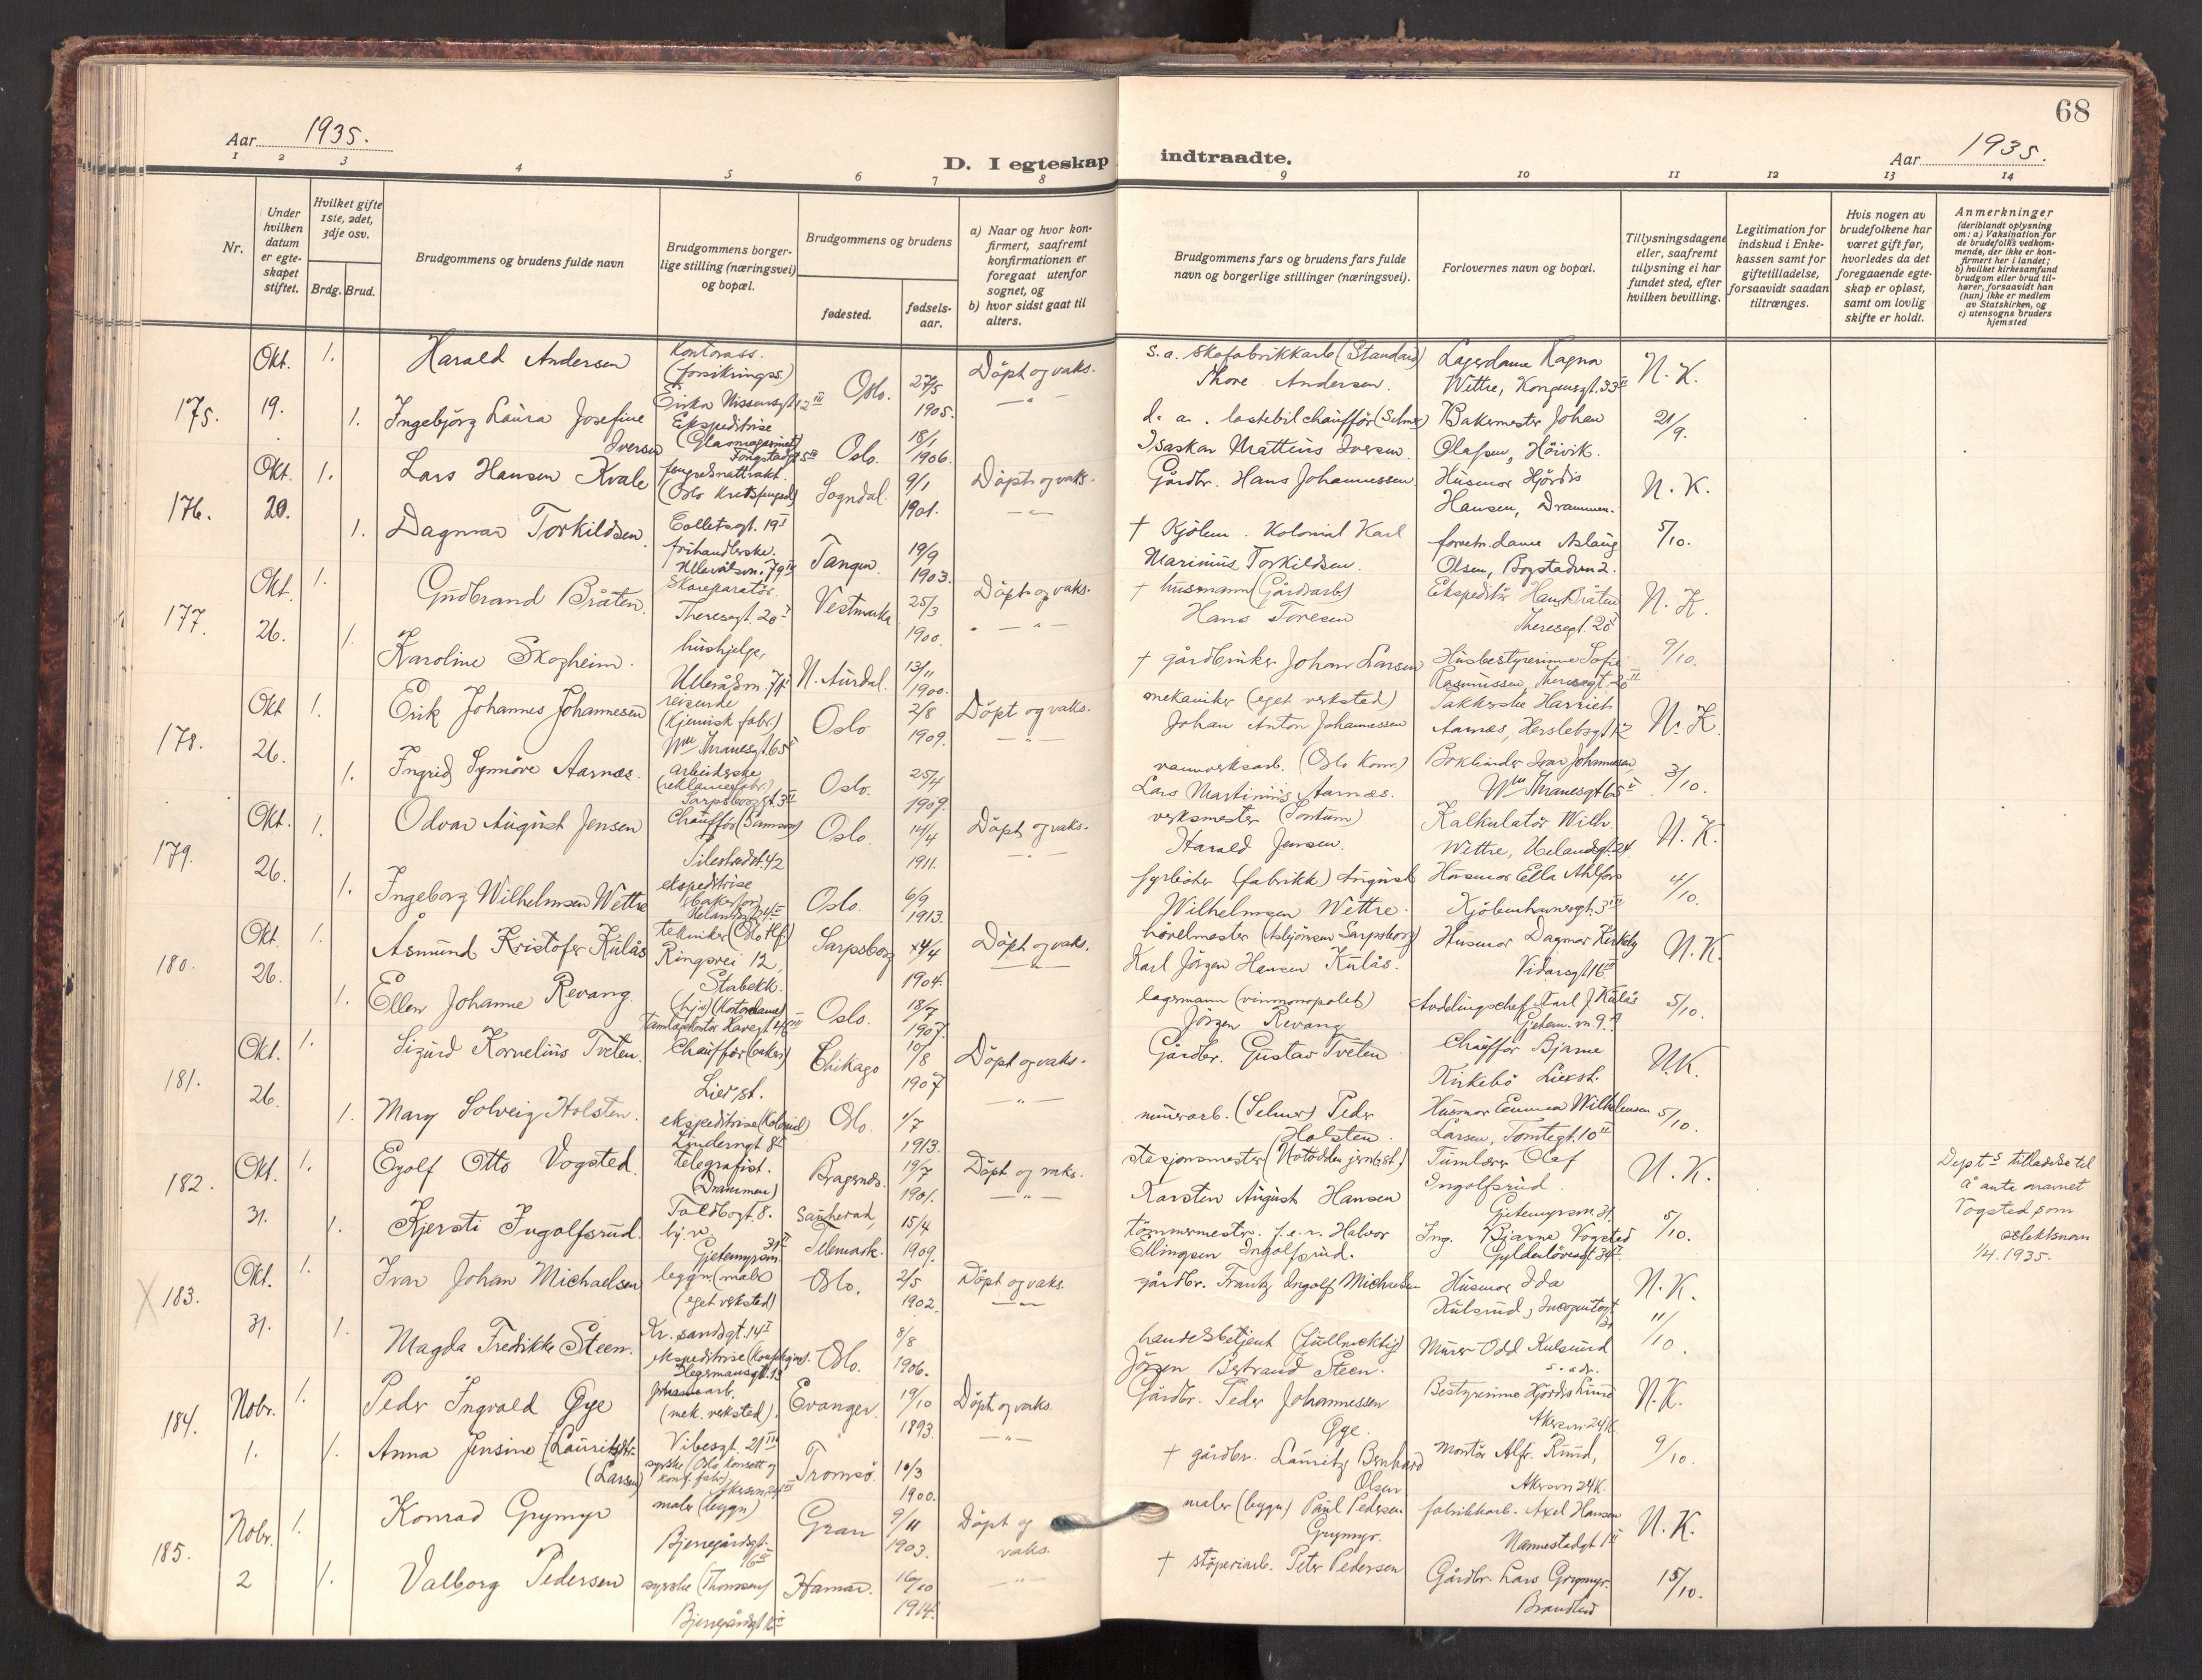 68
Aar 1935.
D. I egteskap indtraadte.
Aar 1935.
1 2 3 4 5 6 7 8 9 10 11 12 13 14
Nr.
Under hvilken datum er egteskapet stiftet.
Hvilket gifte 1ste, 2det, 3dje osv.
Brdg. Brud.
Brudgommens og brudens fulde navn
Brudgommens borgerlige stilling (næringsvei) og bopæl.
Brudgommens og brudens
fødested.
fødselsaar.
a) Naar og hvor konfirmert, saafremt konfirmationen er foregaat utenfor sognet, og
b) hvor sidst gaat til alters.
Brudgommens fars og brudens fars fulde navn og borgerlige stillinger (næringsvei).
Forlovernes navn og bopæl.
Tillysningsdagene eller, saafremt tillysning ei har fundet sted, efter hvilken bevilling.
Legitimation for indskud i Enkekassen samt for giftetilladelse, forsaavidt saadan tiltrænges.
Hvis nogen av brudefolkene har været gift før, hvorledes da det foregaaende egteskap er opløst, samt om lovlig skifte er holdt.
Anmerkninger
(deriblandt oplysning om: a) Vaksination for de brudefolks vedkommende, der ikke er konfirmert her i landet; b) hvilket kirkesamfund brudgom eller brud tilhører, forsaavidt han (hun) ikke er medlem av Statskirken, og c) utensogns bruders hjemsted
175. Okt. 19.
1. Harald Andersen
Kontorass. (forsikringss.)
Oslo. 27/5 1905.
Döpt og vaks.
s. a. skofabrikkarb (Standard) Thore Andersen.
Lagerdame Ragna Wettre, Kongensgt. 33 II
N. K.
1. Ingebjörg Laura Josefine Iversen
Ekspeditrise (Glasmagasinet)
Oslo. 18/1 1906.
d. a. lastebilchaufför (Selmer) Isaskar Mattius Iversen
Bakermester Johan Olafsen, Hövik.
21/9.
176. Okt. 20.
1. Lars Hansen Kvale
(Oslo Kretsfengsel) Colletsgt. 19 I
Sogndal. 9/1 1901.
Döpt og vaks.
Gårdbr. Hans Johannessen
Husmor Hjördis Hansen, Drammen.
N. K.
1. Dagmar Torkildsen.
Ullevålsvn. 79 IV
Tangen. 19/9 1903.
† Kjölem. Kolonial Karl Marinius Torkildsen.
forretn.dame Aslaug Olsen, Bogstadvn 2.
5/10.
177. Okt. 26.
1. Gudbrand Bråten.
Skoreparatör Theresegt. 20 I
Vestmarka 25/3 1900.
Döpt og vaks.
† husmann (Gårdsarb) Hans Toresen
Ekspeditör Hans Bråten Theresegt. 20 I
N. K.
1. Karoline Skogheim.
hushjelp,
N. Aurdal. 13/11 1900.
† gårdbruker Johan Larsen
Husbestyrerinne Sofie Rasmussen, Theresegt. 20 II
9/10.
178. Okt 26.
1. Erik Johannes Johannesen
reisende (Kjemisk fabr.) Wm Thranesgt. 65 II
Oslo 2/8 1909.
Döpt og vaks.
mekaniker (eget verksted) Johan Anton Johannessen
Pakkerske Harriet Aarnæs, Herslebsgt 12
N. K.
1. Ingrid Synnöve Aarnæs.
arbeiderske (reklamefabr.) Sarpsborggt. 3 II
Oslo. 25/4 1909.
Lars Martinius Aarnæs.
Bokbinder Ivar Johannesen, Wm Thranesgt 65 II
3/10.
179. Okt. 26.
1. Odvar August Jensen
Chauffør (Samson)
Oslo. 14/4 1911.
Döpt og vaks.
verksmester Harald Jensen.
Kalkulatör Wilh. Wettre, Uelandsgt. 24
N. K.
1. Ingeborg Wilhelmsen Wettre
ekspeditrise
Oslo. 6/9 1913.
fyrböter (fabrikk) August Wilhelmsen Wettre.
Husmor Ella Ahlfors Kjöbenhavnsgt. 3 III
4/10.
180. Okt. 26.
1. Asmund Kristofer Kulås
tekniker (Oslo tlf) Ringvei 12, Stabekk.
Sarpsborg 4/4 1904.
Döpt og vaks.
hövelmester (Asbjörnsen Sarpsborg) Karl Jörgen Hansen Kulås.
Husmor Dagmar Kirkeby Vidarsgt 16 III
N. K.
1. Ellen Johanne Revang
(Kontordame)
Oslo. 18/7 1907.
lagermann (vinmonopolet) Jörgen Revang
Avdelingschef Karl J Kulås Gjetem. vn. 9 A
5/10.
181. Okt. 26.
1. Sigurd Kornelius Tveten.
Chauffør (baker) Lier st.
Chikago 10/8 1907
Döpt og vaks.
Gårdbr. Gustav Tveten
Chauffør Bjarne Kirkebö Lier st.
N. K.
1. Mary Solveig Holsten.
ekspeditrise (Kolonial) Linderngt 8
Oslo. 1/7 1913.
minerarb. (Selmer) Peder Holsten.
Husmor Emma Wilhelmsen Larsen, Tomtegt. 10 II
5/10.
182. Okt. 31.
1. Eyolf Otto Vogsted.
telegrafist. (Drammen) Toldbogt. 8.
Bragernes. 19/7 1901.
Döpt og vaks.
stasjonsmester (Notodden jernb.st.) Karsten August Hansen
Tömlærer Olaf Ingolfsrud. Gjetemyrsvn. 31.
N. K.
Dept s tilladelse til å anta navnet Vogsted som slektsnavn 1/4. 1935.
1. Kjersti Ingolfsrud.
hj. v. Gjetemyrsvn. 31 II
Sauherad, Telemark. 15/4 1909.
tömmermester. Halvor Ellingsen Ingolfsrud.
Ing. Bjarne Vogsted Gyldenlövesgt. 34 I
5/10.
X 183. Okt. 31.
1. Ivar Johan Michaelsen
byggn (maler) (eget verksted) Kr. sandsgt. 14 I
Oslo. 2/5 1902.
Döpt og vaks.
gårdbr. Frantz Ingolf Michaelsen
Husmor Ida Kulsrud, Incognitogt
N. K.
1. Magda Fredikke Steen.
ekspeditrise Hegermansgt. 13
Oslo. 8/8 1906.
handelsbetjent (fullmektig) Jörgen Bertrand Steen.
Murer Odd Kulsrud s. adr.
11/10.
184. Nobr. 1.
1. Peder Ingvald Gye
(mek. verksted). Vibesgt. 21 III
Evanger. 19/10 1893.
Döpt og vaks.
Gårdbr. Peder Johannessen Gye.
Bestyrerinne Hjördis Ruud Akersvn 24 K
N. K.
1. Anna Jensine (Lauritsdtr. (Larsen)
syerske
Tromsö. 10/3 1900.
† gårdbr. Lauritz Bernhard Olsen
Montör Alfr. Ruud, Akersvn 24 K.
9/10.
185. Nobr. 2
1. Konrad Grymyr
maler (byggn) Bjerregårdsgt.
Gran 9/11 1903.
Döpt og vaks.
maler (bygn) Paul Pedersen Grymyr.
fabrikkarb. Axel Hansen Nannestadgt 1 II
N. K.
1. Valborg Pedersen
syerske (Thomsen) Bjerregårdsgt
Hamar. 16/10 1914.
† stöperiarb. Peter Pedersen
Gårdbr. Lars Grymyr. Brandbu
15/10.